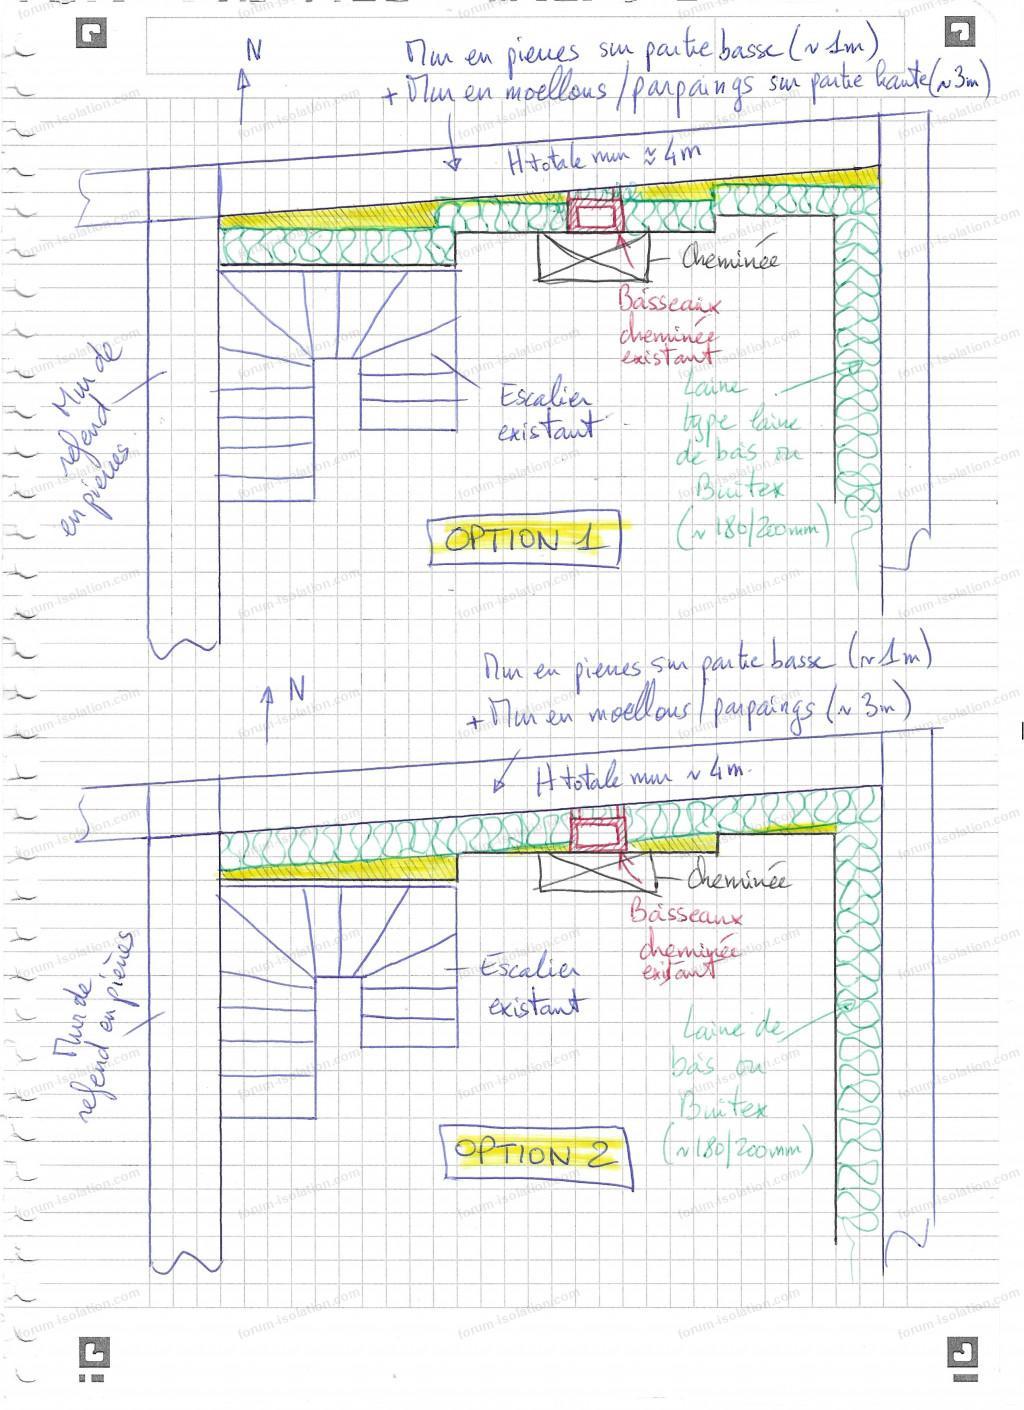 N
Mur en pierres sur partie basse (~ 1m)
+ Mur en moellons / parpaings sur partie haute (~ 3m)
H totale mur ≈ 4m
Cheminée
Boisseaux
cheminée
existant
Mur de
refend
en pierres
Escalier
existant
Laine
type laine
de bois ou
Buitex
(~ 180/200mm)
OPTION 1
N
Mur en pierres sur partie basse (~ 1m)
+ Mur en moellons / parpaings (~ 3m)
H totale mur ~ 4m.
Cheminée
Boisseaux
cheminée
existant
Mur de
refend en pierres
Escalier
existant
Laine de
bois ou
Buitex
(~ 180/200mm)
OPTION 2
forum-isolation.com